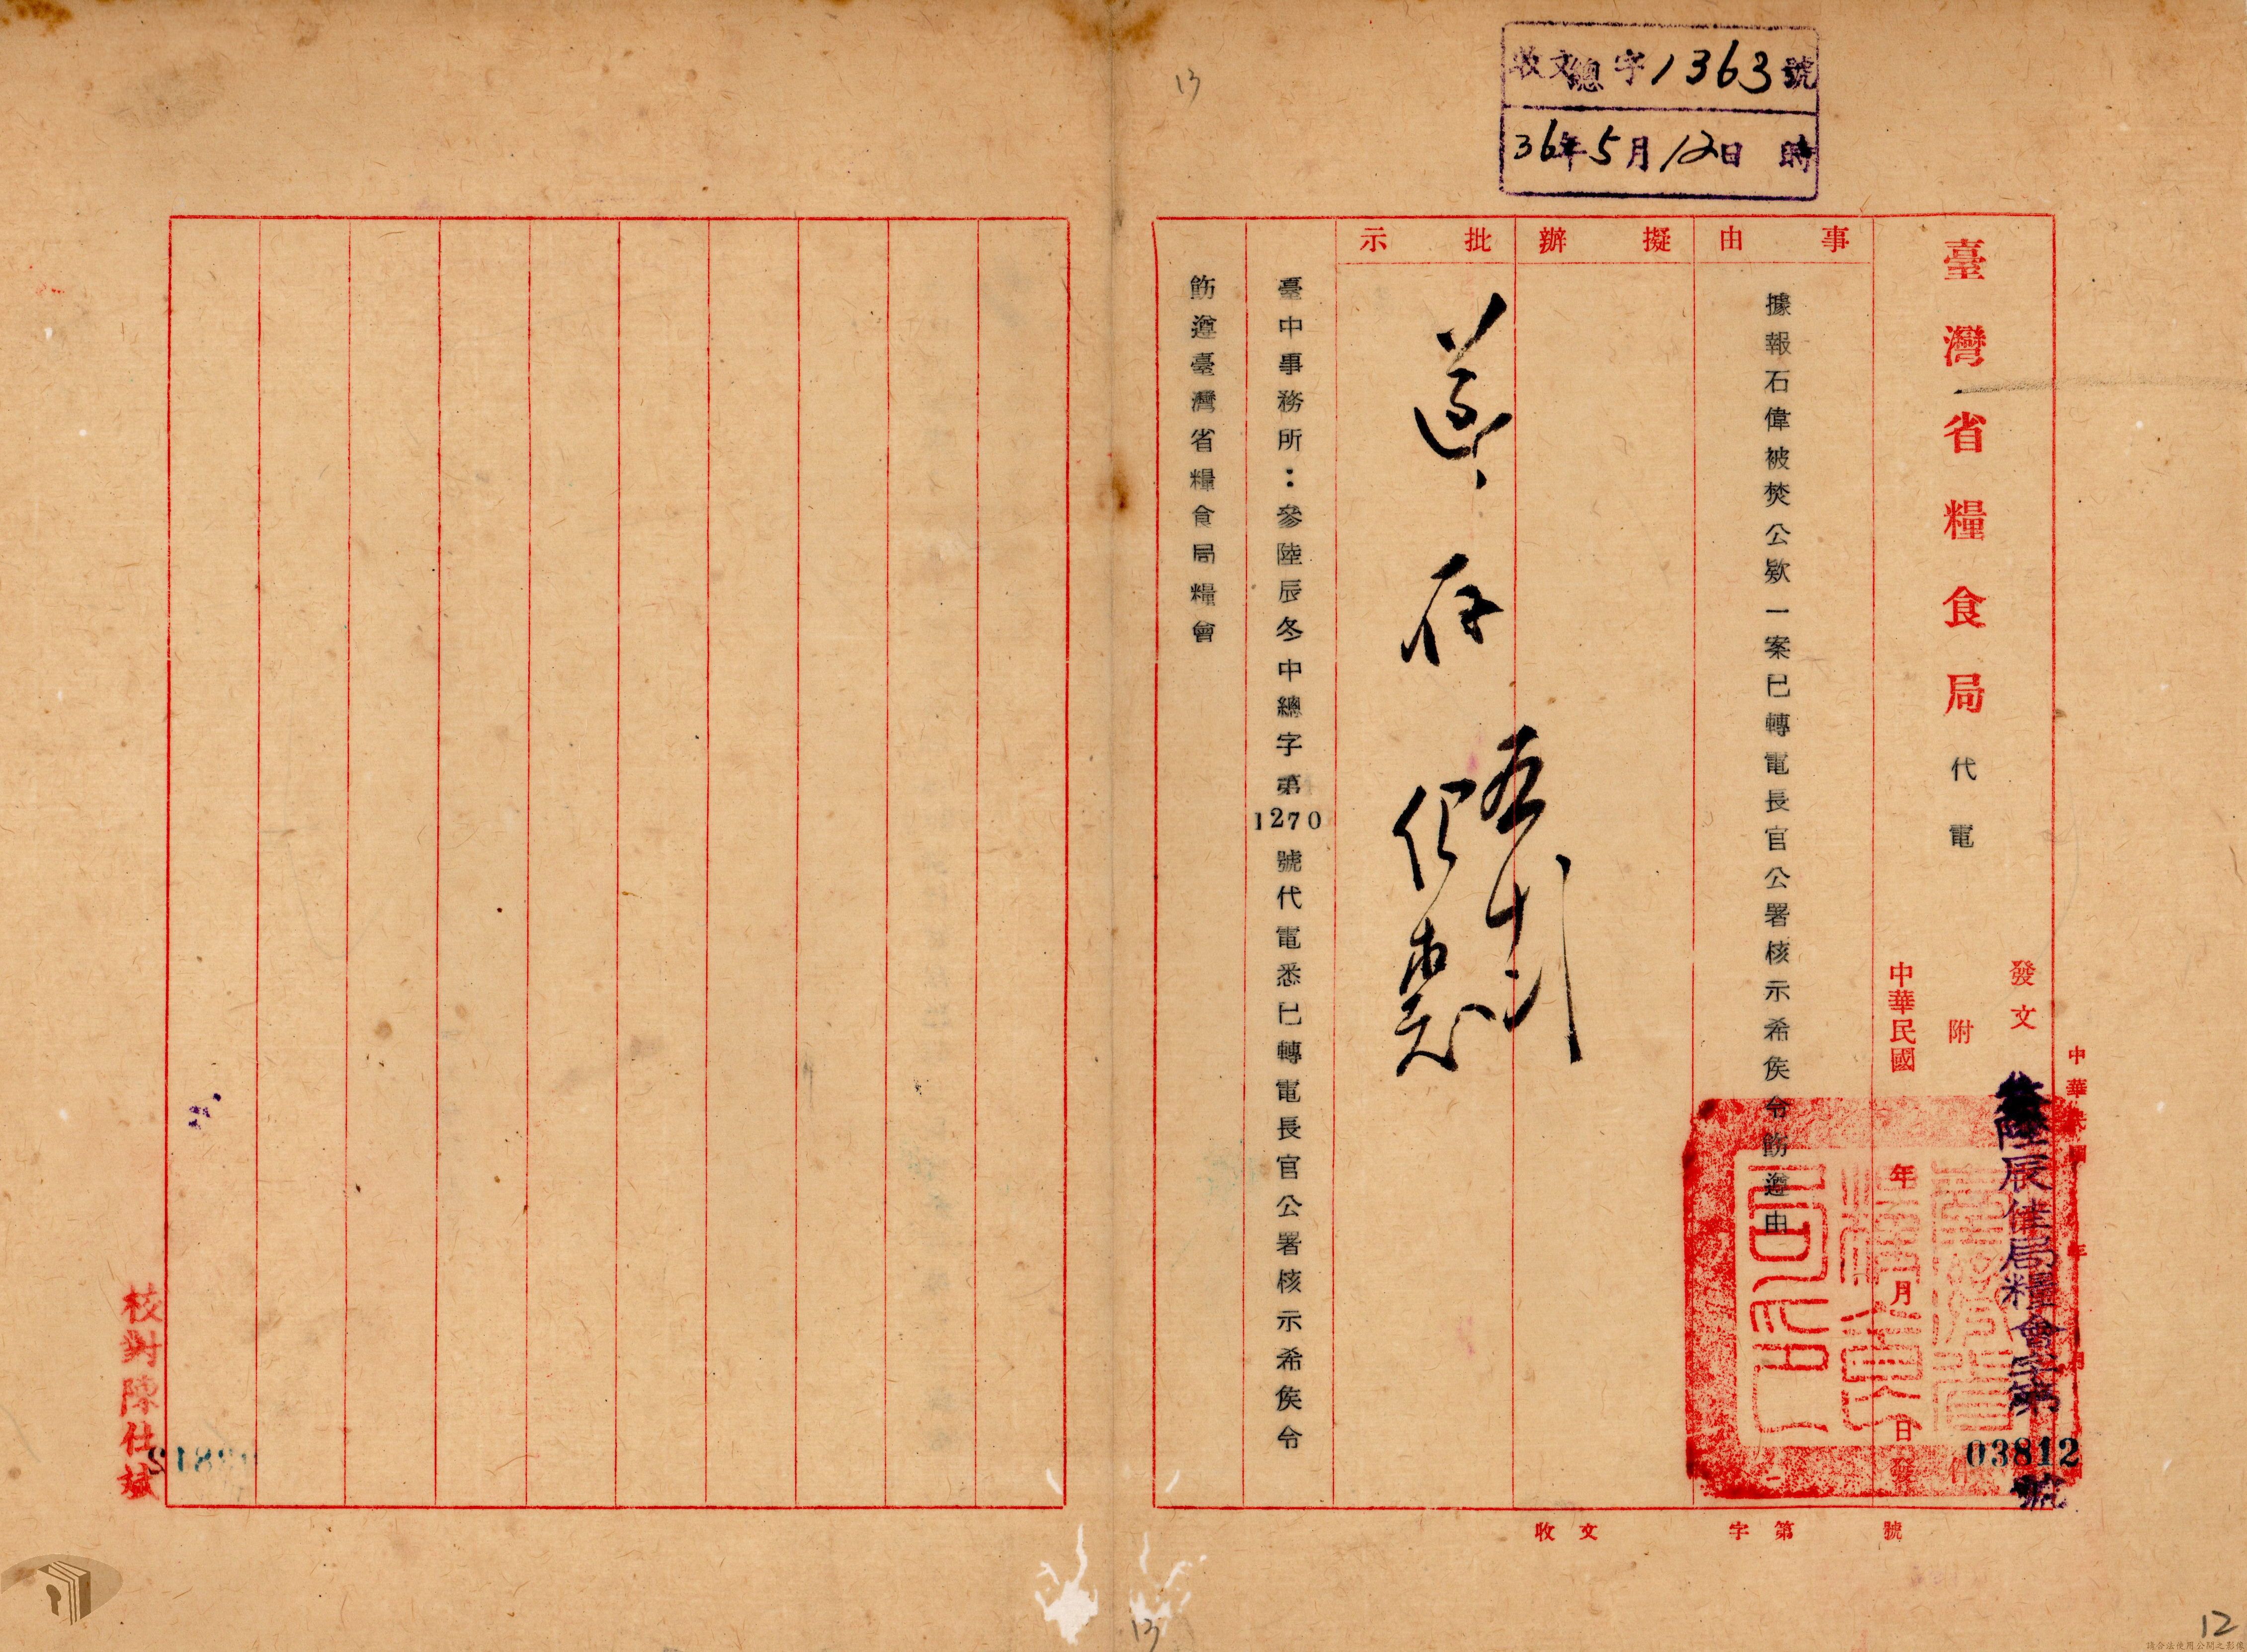 收文總字1363號
36年5月12日 時
13
臺灣省糧食局代電
發文
參陸辰佳局糧會字第03812號
附 件
中華民國 年 月 日發
事由
擬辦
批示
據報石偉被焚公欵一案已轉電長官公署核示希俟令飭遵由
遵 存
五 十二
臺中事務所:參陸辰冬中總字第1270號代電悉已轉電長官公署核示希俟令
飭遵臺灣省糧食局糧會
收文 字第 號
校對陳仕斌
13
12